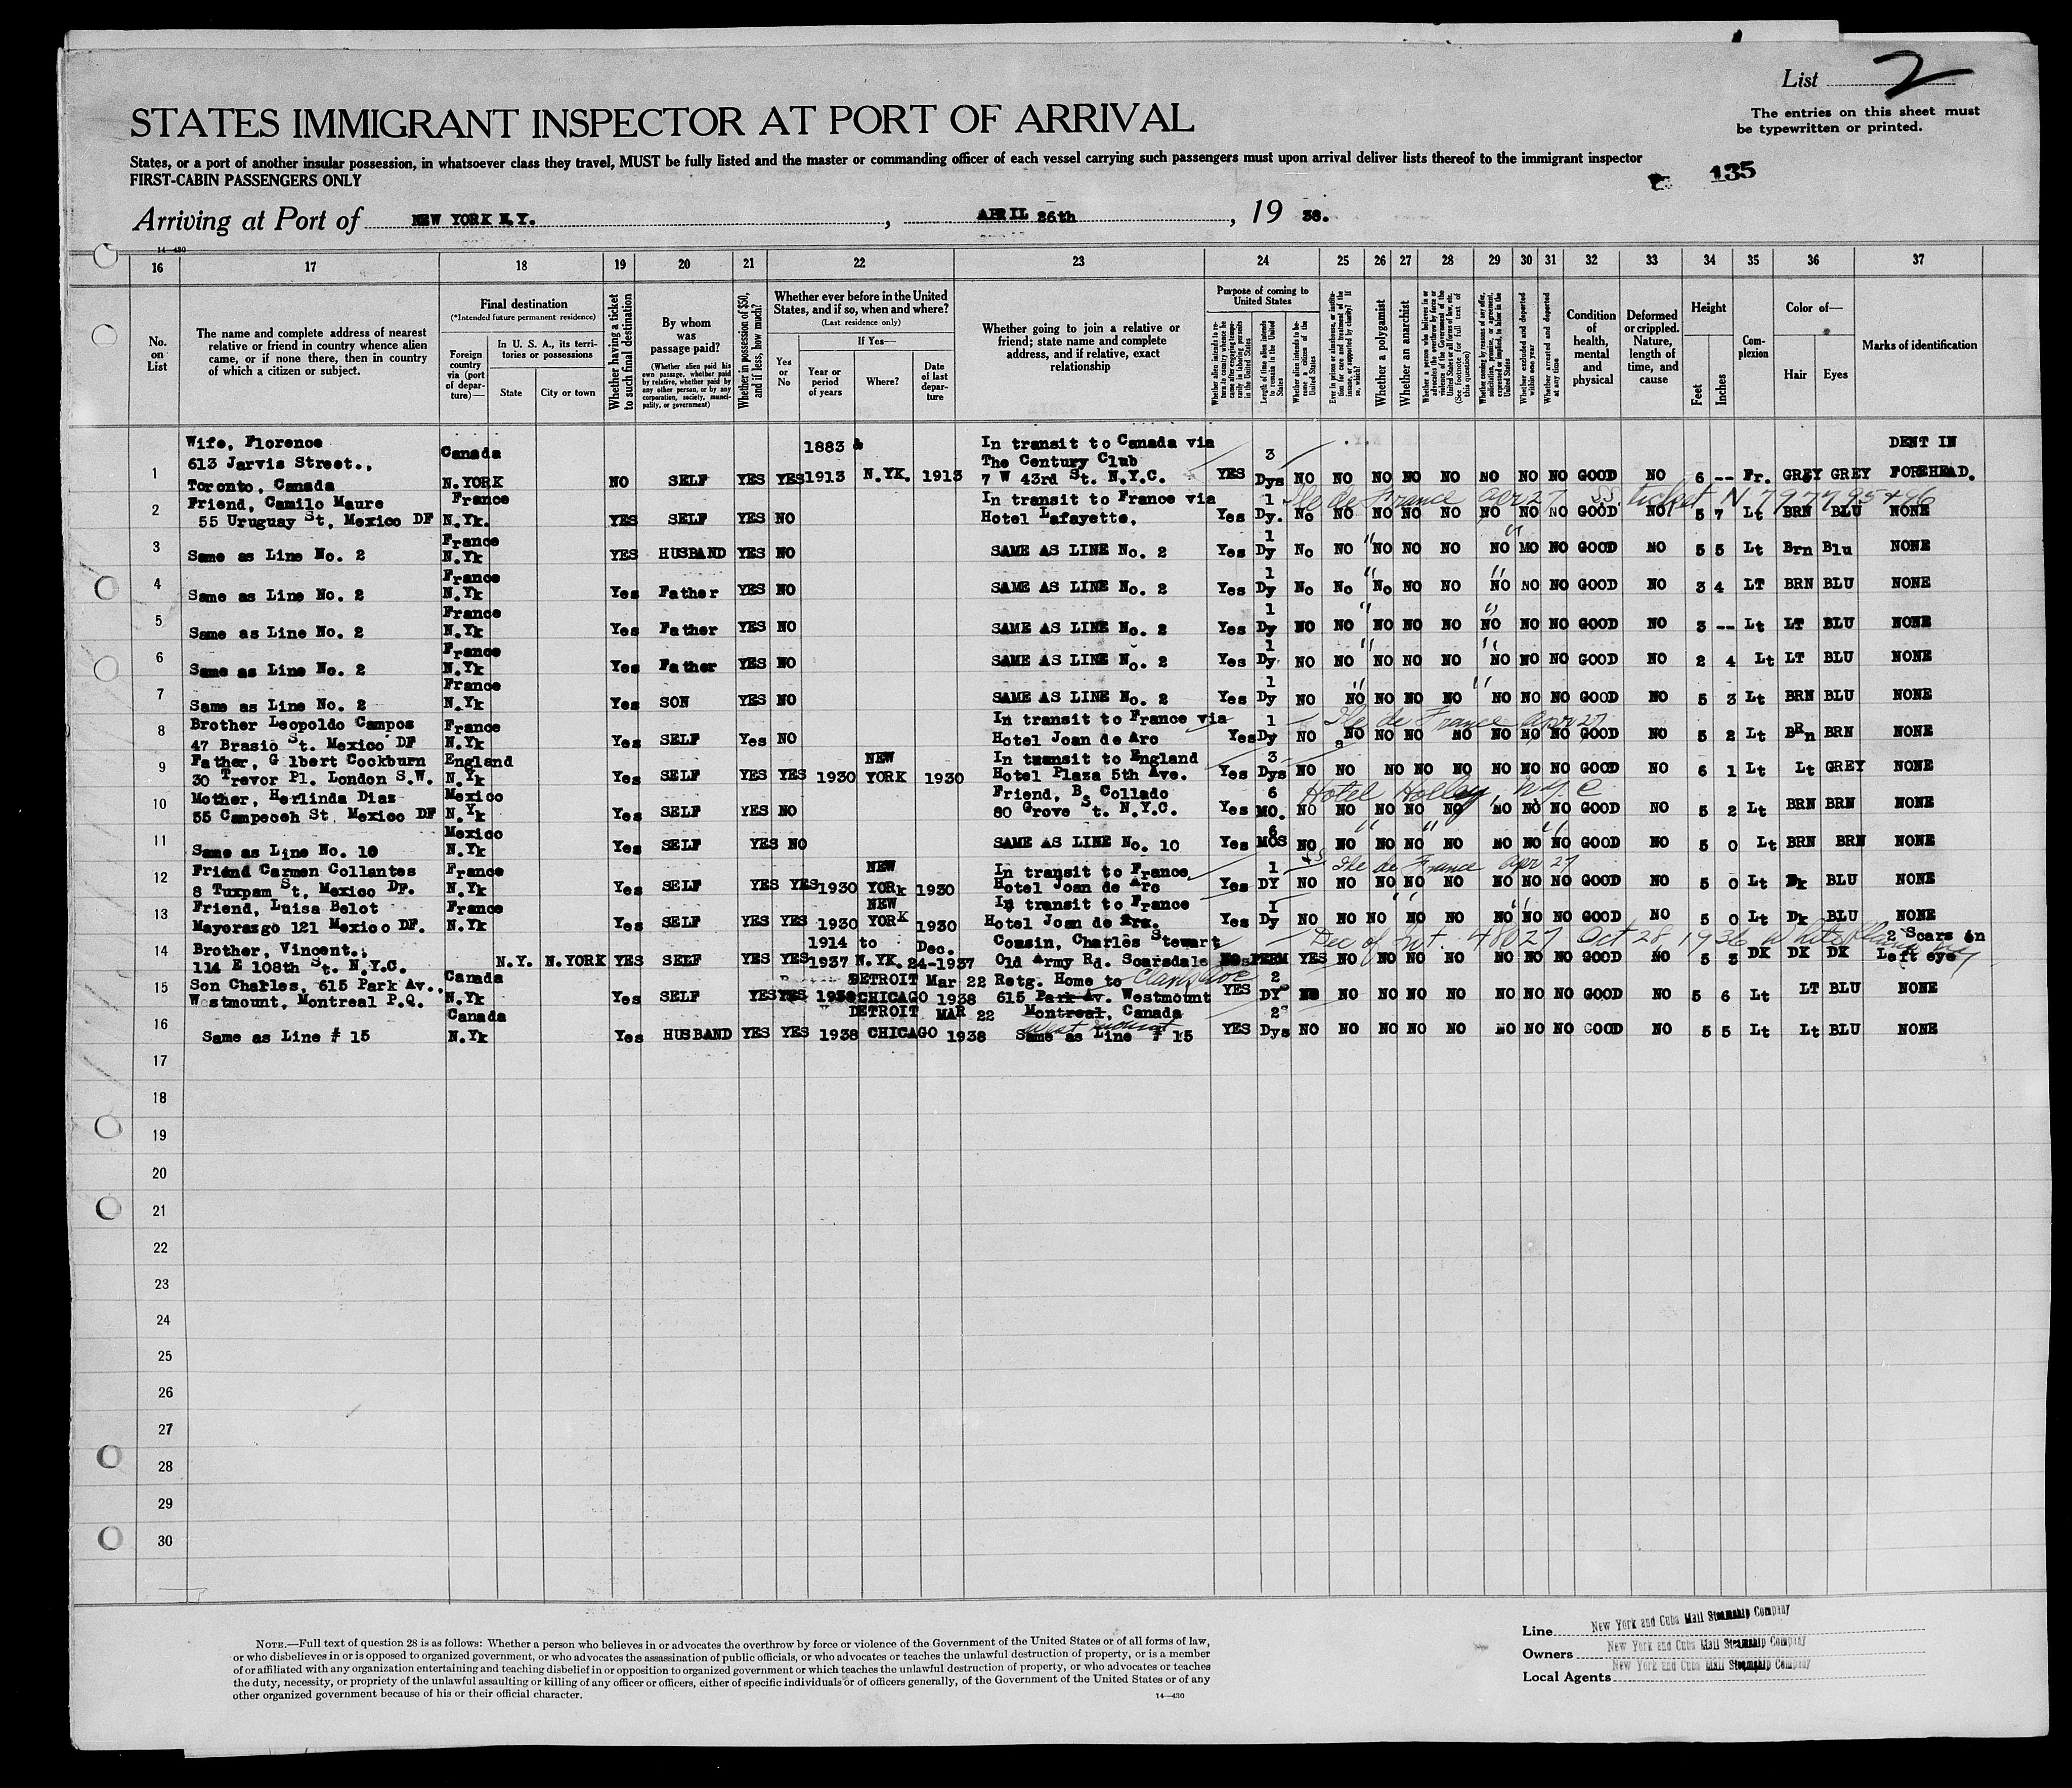 List 2
The entries on this sheet must
be typewritten or printed.
STATES IMMIGRANT INSPECTOR AT PORT OF ARRIVAL
States, or a port of another insular possession, in whatsoever class they travel, MUST be fully listed and the master or commanding officer of each vessel carrying such passengers must upon arrival deliver lists thereof to the immigrant inspector
FIRST-CABIN PASSENGERS ONLY
135
Arriving at Port of NEW YORK N.Y. , APRIL 26th , 19 38.
14—430
16 17 18 19 20 21 22 23 24 25 26 27 28 29 30 31 32 33 34 35 36 37
No. on List
The name and complete address of nearest relative or friend in country whence alien came, or if none there, then in country of which a citizen or subject.
Final destination
(*Intended future permanent residence)
Foreign country via (port of departure)—
In U. S. A., its territories or possessions
State
City or town
Whether having a ticket to such final destination
By whom was passage paid?
(Whether alien paid his own passage, whether paid by relative, whether paid by any other person, or by any corporation, society, municipality, or government)
Whether in possession of $50, and if less, how much?
Whether ever before in the United States, and if so, when and where?
(Last residence only)
Yes or No
If Yes—
Year or period of years
Where?
Date of last departure
Whether going to join a relative or friend; state name and complete address, and if relative, exact relationship
Purpose of coming to United States
Length of time alien intends to remain in the United States
Whether alien intends to become a citizen of the United States
Whether a polygamist
Whether an anarchist
Whether excluded and deported within one year
Whether arrested and deported at any time
Condition of health, mental and physical
Deformed or crippled. Nature, length of time, and cause
Height
Feet
Inches
Complexion
Color of—
Hair
Eyes
Marks of identification
Wife, Florence Canada 1883 & In transit to Canada via 3 DENT IN
613 Jarvis Street., The Century Club
1 Toronto, Canada N.YORK NO SELF YES YES 1913 N.YK. 1913 7 W 43rd St. N.Y.C. YES Dys NO NO NO NO NO NO NO NO GOOD NO 6 -- Fr. GREY GREY FOREHEAD.
Friend, Camilo Maure France In transit to France via 1 Ile de France apr 27 SS. ticket
2 55 Uruguay St, Mexico DF N.Yk. YES SELF YES NO Hotel Lafayette, Yes Dy. No NO NO NO NO NO NO NO GOOD NO 5 7 Lt BRN BLU NONE
France 1 "
3 Same as Line No. 2 N.Yk YES HUSBAND YES NO SAME AS LINE No. 2 Yes Dy No NO NO NO NO NO MO NO GOOD NO 5 5 Lt Brn Blu NONE
France 1 " "
4 Same as Line No. 2 N.Yk Yes Father YES NO SAME AS LINE No. 2 Yes Dy No No No NO NO NO NO NO GOOD NO 3 4 LT BRN BLU NONE
France 1 " "
5 Same as Line No. 2 N.Yk Yes Father YES NO SAME AS LINE No. 2 Yes Dy NO NO NO NO NO NO NO NO GOOD NO 3 -- Lt LT BLU NONE
France 1 " "
6 Same as Line No. 2 N.Yk Yes Father YES NO SAME AS LINE No. 2 Yes Dy NO NO NO NO NO NO NO NO GOOD NO 2 4 Lt LT BLU NONE
France 1 " "
7 Same as Line No. 2 N.Yk Yes SON YES NO SAME AS LINE No. 2 Yes Dy NO NO NO NO NO NO NO NO GOOD NO 5 3 Lt BRN BLU NONE
Brother Leopoldo Campos France In transit to France via 1 Ile de France apr 27
8 47 Brasio St. Mexico DF N.Yk Yes SELF Yes NO Hotel Joan de Arc Yes Dy NO NO NO NO NO NO NO NO GOOD NO 5 2 Lt BRn BRN NONE
Father, G lbert Cockburn England NEW In transit to England 3
9 30 Trevor Pl. London S.W. N.Yk Yes SELF YES YES 1930 YORK 1930 Hotel Plaza 5th Ave. Yes Dys NO NO NO NO NO NO NO NO GOOD NO 6 1 Lt Lt GREY NONE
Mother, Herlinda Dias Mexico Friend, B. Collado 6 Hotel Holley, N.Y.C
10 55 Campeceh St. Mexico DF N.Yk Yes SELF YES NO 80 Grove St. N.Y.C. Yes MO. NO NO NO NO NO NO NO NO GOOD NO 5 2 Lt BRN BRN NONE
Mexico 6 " " "
11 Same as Line No. 10 N.Yk Yes SELF YES NO SAME AS LINE No. 10 Yes MOS NO NO NO NO NO NO NO NO GOOD NO 5 0 Lt BRN BRN NONE
Friend Carmen Collantes France NEW In transit to France 1 SS. Ile de France apr 27
12 8 Tuxpam St, Mexico DF. N.Yk Yes SELF YES YES 1930 YORk 1930 Hotel Joan de Arc Yes DY NO NO NO NO NO NO NO NO GOOD NO 5 0 Lt Dk BLU NONE
Friend, Luisa Belot France NEW In transit to France 1 " "
13 Mayorazgo 121 Mexico DF. N.Yk Yes SELF YES YES 1930 YORK 1930 Hotel Joan de Arc. Yes Dy NO NO NO NO NO NO NO NO GOOD NO 5 0 Lt Dk BLU NONE
Brother, Vincent., 1914 to Dec. Cousin, Charles Stewart Dec of Int. 48027 Oct 28, 1936 White Plains NY 2 Scars on
14 114 E 108th St. N.Y.C. N.Y. N.YORK YES SELF YES YES 1937 N.YK. 24-1937 Old Army Rd. Scarsdale PERM YES NO NO NO NO NO NO NO GOOD NO 5 3 DK DK DK Left eye
Son Charles, 615 Park Av., Canada DETROIT Mar 22 Retg. Home to 2
15 Westmount, Montreal P.Q. N.Yk Yes SELF YES YES 1938 CHICAGO 1938 615 Park Av. Westmount YES DYs NO NO NO NO NO NO NO NO GOOD NO 5 6 Lt LT BLU NONE
Canada DETROIT MAR 22 Montreal, Canada 2
West mount
16 Same as Line # 15 N.Yk Yes HUSBAND YES YES 1938 CHICAGO 1938 Same as Line # 15 YES Dys NO NO NO NO NO NO NO NO GOOD NO 5 5 Lt Lt BLU NONE
17
18
19
20
21
22
23
24
25
26
27
28
29
30
NOTE.—Full text of question 28 is as follows: Whether a person who believes in or advocates the overthrow by force or violence of the Government of the United States or of all forms of law,
or who disbelieves in or is opposed to organized government, or who advocates the assassination of public officials, or who advocates or teaches the unlawful destruction of property, or is a member
of or affiliated with any organization entertaining and teaching disbelief in or opposition to organized government or which teaches the unlawful destruction of property, or who advocates or teaches
the duty, necessity, or propriety of the unlawful assaulting or killing of any officer or officers, either of specific individuals or of officers generally, of the Government of the United States or of any
other organized government because of his or their official character.
14—430
Line New York and Cuba Mail Steamship Company
Owners New York and Cuba Mail Steamship Company
Local Agents New York and Cuba Mail Steamship Company